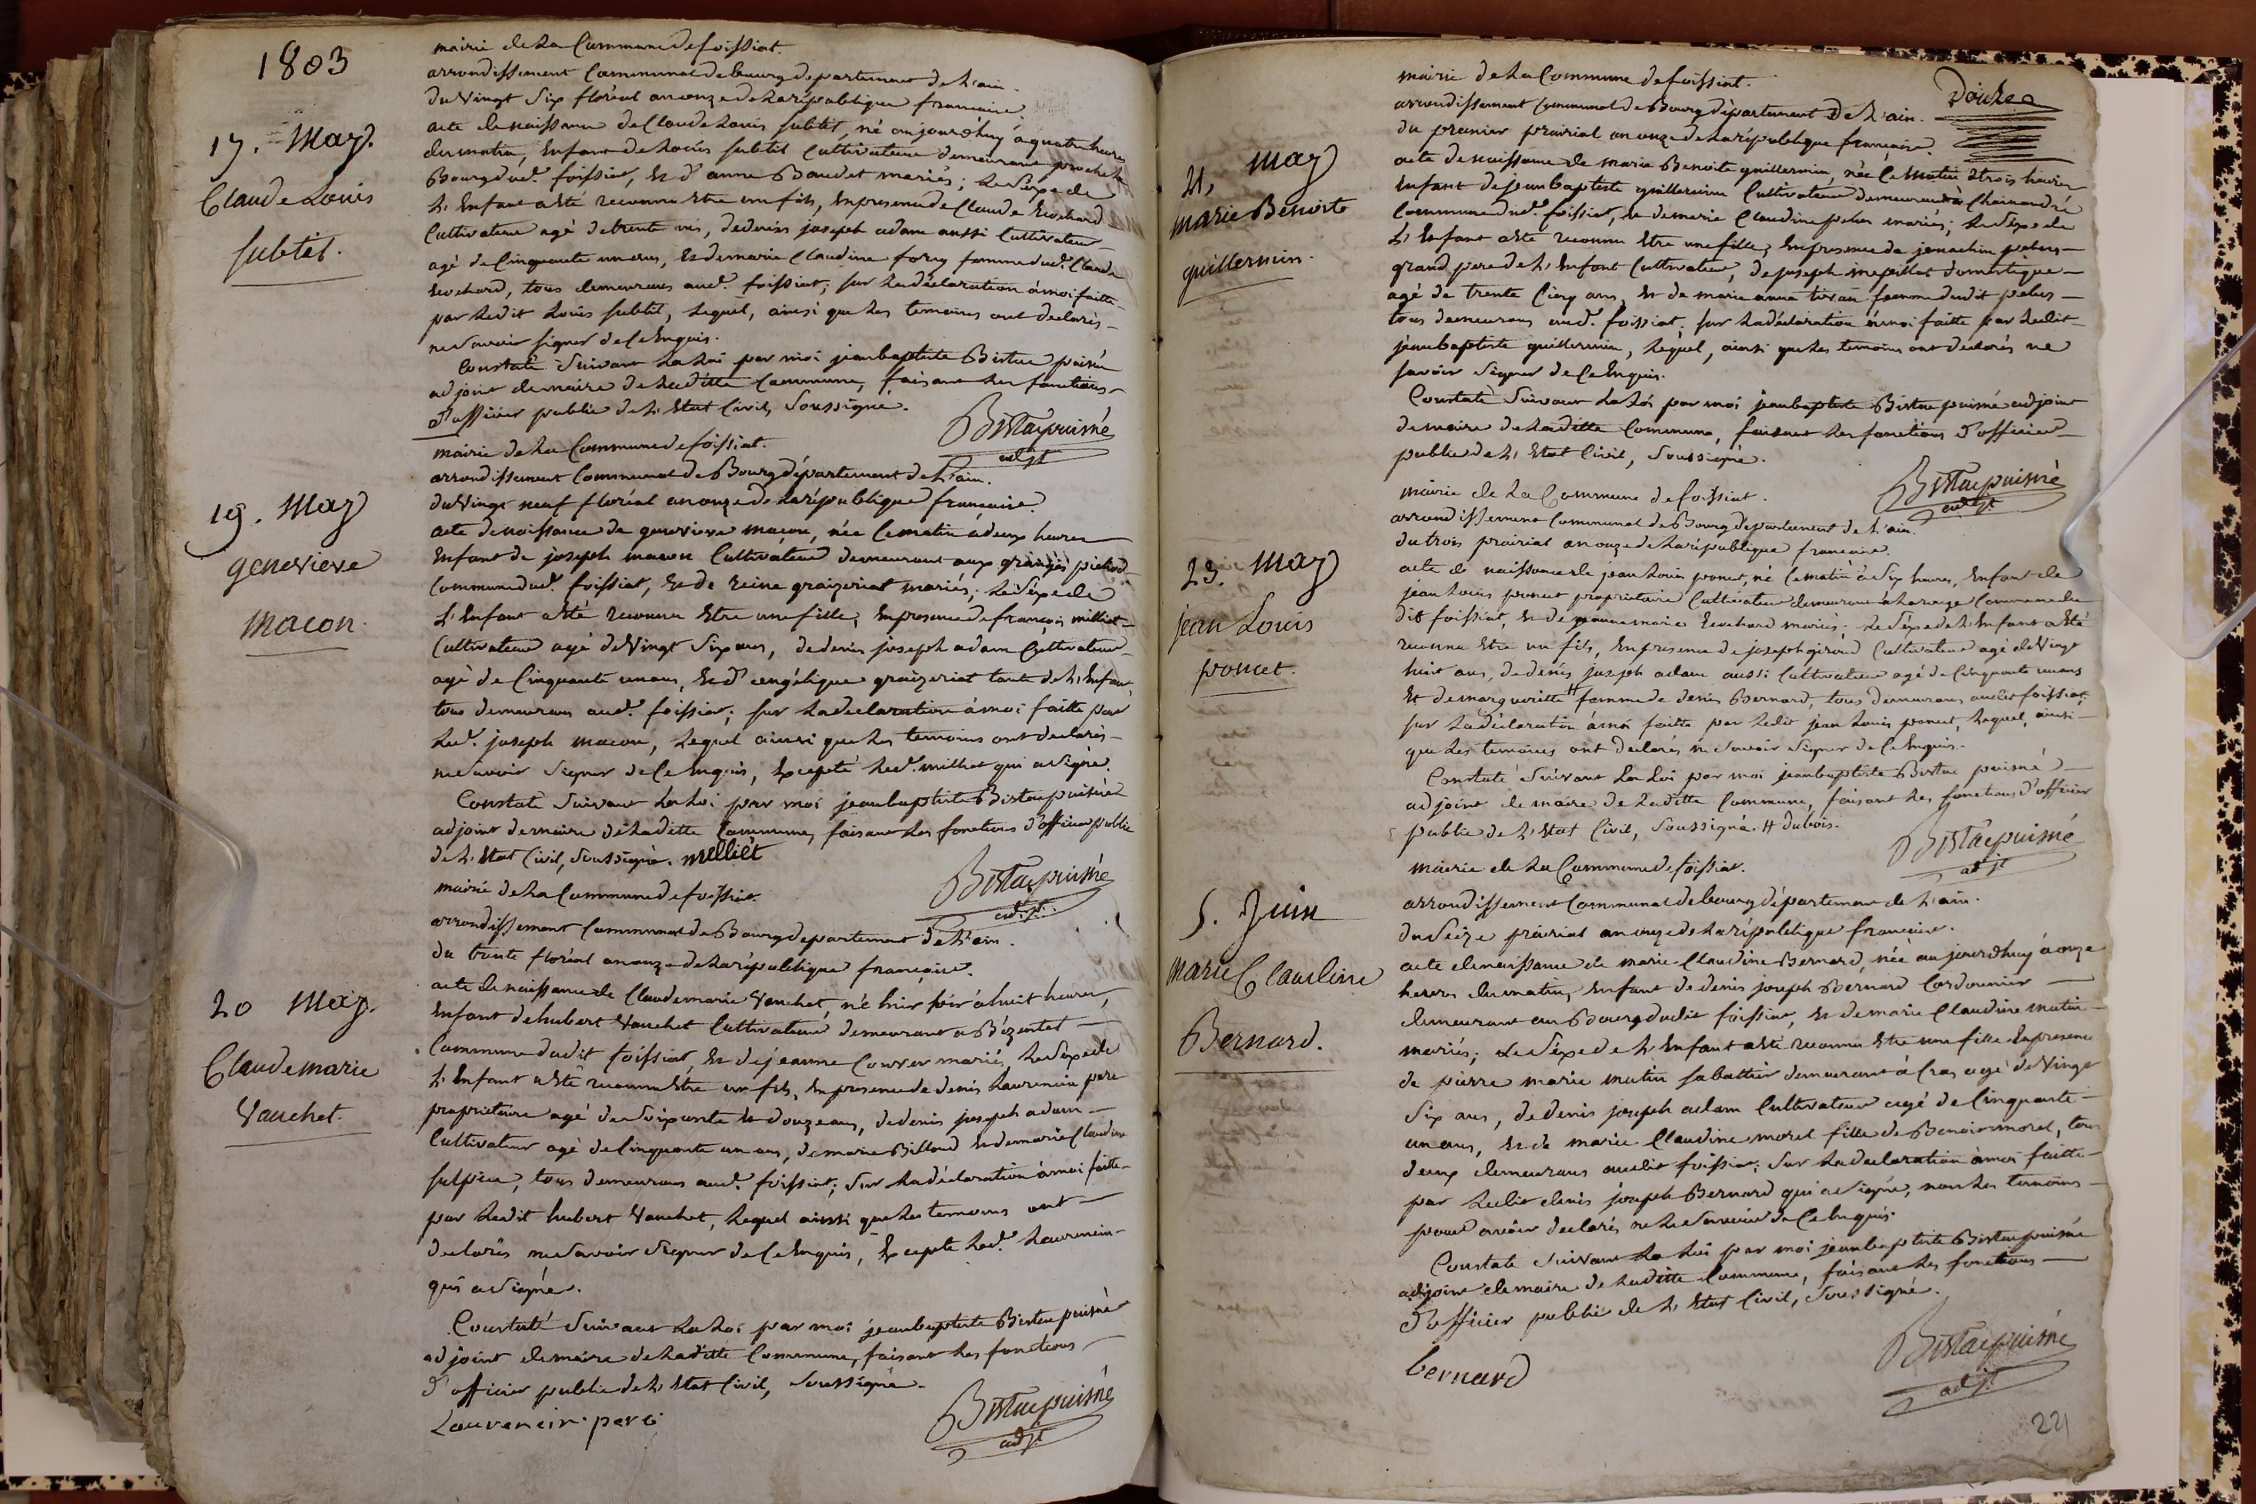 1803
mairie de La Commune de foissiat.
arrondissement Communal de bourg departement de L'ain.
du Vingt Six floréal an onze de La république francaise.
17. May.
Claude Louis
subtil.
acte de naissance de Claude Louis subtil, né aujourd'huy à quatre heures
du matin, Enfant de Louis subtil Cultivateur demeurant proche le
Bourg dud. foissiat, Et d'anne Baudet mariés; Le Sexe de
L'Enfant a Eté reconnu Etre un fils, En presence de Claude Ecochard
Cultivateur agé de trente ans, de denis joseph adam aussi Cultivateur
agé de Cinquante un ans, Et de marie Claudine fory femme dud. Claude
Ecochard, tous demeurans aud. foissiat; sur La déclaration à moi faitte
par Ledit Louis subtil, Lequel, ainsi que Les temoins ont declarés
ne Savoir signer de Ce Enquis.
Constaté Suivant La Loi par moi jean baptiste Bistac puisné
adjoint de maire de Laditte Commune, faisant Les fonctions
d'officier public de L'Etat Civil, Soussigné.
Bistac puisné
adjt
mairie de La Commune de foissiat.
arrondissement Communal de Bourg département de L'ain.
du Vingt neuf floréal an onze de La république francaise.
19. May
genevieve
macon.
acte de naissance de genevieve macon, née Ce matin à deux heures
Enfant de joseph macon Cultivateur demeurant aux granges pichod
Commune dud. foissiat, Et de Reine graizeriat mariés; Le Sexe de
L'Enfant a Eté reconnu Etre une fille, En presence de françois milliet
Cultivateur agé de Vingt Six ans, de denis joseph adam Cultivateur
agé de Cinquante un ans, Et d'angélique graizeriat tante de L'Enfant,
tous demeurans aud. foissiat; sur La declaration à moi faitte par
Led. joseph macon, Lequel ainsi que Les temoins ont declarés
ne Savoir Signer de Ce Enquis, Excepté Led. milliet qui a Signé.
Constaté Suivant La Loi par moi jean baptiste Bistac puisné
adjoint de maire de Laditte Commune, faisant Les fonctions d'officier public
de L'Etat Civil, Soussigné. milliet
Bistac puisné
adjt.
mairie de La Commune de foissiat.
arrondissement Communal de Bourg departement de L'ain.
du trente floréal an onze de La république française.
20 May.
Claude marie
Vauchet.
acte de naissance de Claude marie Vauchet, né hier soir à huit heures,
Enfant de hubert Vauchet Cultivateur demeurant a Bézentet
Commune dudit foissiat, Et de jeanne Couvar mariés, Le Sexe de
L'Enfant a Eté reconnu Etre un fils, En presence de denis Laurencin pere
proprietaire agé de Soixante Et douze ans, de denis joseph adam
Cultivateur agé de Cinquante un ans, de marie Billoud Et de marie Claudine
sulpice, tous demeurans aud. foissiat; Sur La déclaration à moi faitte
par Ledit hubert Vauchet, Lequel ainsi que Les temoins ont
declarés ne Savoir Signer de Ce Enquis, Excepté Led. Laurencin
qui a Signé.
Constaté Suivant La Loi par moi jean baptiste Bistac puisné
adjoint de maire de Laditte Commune, faisant Les fonctions
d'officier public de L'Etat Civil, Soussigné.
Laurencin pere
Bistac puisné
adjt
mairie de La Commune de foissiat.
arrondissement Communal de Bourg département De L'ain.
du premier prairial an onze de La république française.
21. may
marie Benoite
guillermin.
acte de naissance de marie Benoite guillermin, née Ce Matin à trois heures
Enfant de jean baptiste guillermin Cultivateur demeurant à Chainandré
Commune dud. foissiat, Et de marie Claudine pelus mariés; Le Sexe de
L'Enfant a Eté reconnu Etre une fille; En presence de joachim pelus
grand pere de L'Enfant Cultivateur, de joseph mepillat domestique
agé de trente Cinq ans, Et de marie anne tiran femme dudit pelus
tous demeurans aud. foissiat; sur La déclaration à moi faitte par Ledit
jean baptiste guillermin, Lequel, ainsi que Les temoins ont declarés ne
savoir Signer de Ce Enquis.
Constaté Suivant La Loi par moi jean baptiste Bistac puisné adjoint
de maire de Laditte Commune, faisant Les fonctions d'officier
public de L'Etat Civil, Soussigné.
Bistac puisné
adjt
mairie de La Commune de foissiat.
arrondissement Communal de Bourg département de L'ain.
du trois prairial an onze de La république francaise.
23. May
jean Louis
poncet.
acte de naissance de jean Louis poncet, né Ce matin à Six heures, Enfant de
jean Louis poncet proprietaire Cultivateur demeurant à La rouge Commune du
dit foissiat, Et de jeanne marie Ecochard mariés; Le Sexe de L'Enfant a Eté
reconnu Etre un fils, En presence de joseph giroud Cultivateur agé de Vingt
huit ans, de denis joseph adam aussi Cultivateur agé de Cinquante un ans
Et de margueritte H femme de denis Bernard, tous demeurans audit foissiat;
sur La déclaration à moi faitte par Ledit jean Louis poncet, Lequel, ainsi
que Les temoins ont declarés ne Savoir Signer de Ce Enquis.
Constaté Suivant La Loi par moi jean baptiste Bistac puisné
adjoint de maire de Laditte Commune, faisant Les fonctions d'officier
public de L'Etat Civil, Soussigné. H dubois.
Bistac puisné
adjt
mairie de La Commune de foissiat.
arrondissement Communal de bourg département de L'ain.
du Seize prairial an onze de La république française.
5. Juin
marie Claudine
Bernard.
acte de naissance de marie Claudine Bernard, née aujourd'huy à onze
heures du matin, Enfant de denis joseph Bernard Cordonnier
demeurant au Bourg dudit foissiat, Et de marie Claudine mutin
mariés; Le Sexe de L'Enfant a Eté reconnu Etre une fille En presence
de pierre marie mutin sabattier demeurant à Cras agé de Vingt
Six ans, de denis joseph adam Cultivateur agé de Cinquante
un ans, Et de marie Claudine morel fille de Benoit morel, tous
deux demeurans audit foissiat; Sur La declaration à moi faitte
par Ledit denis joseph Bernard qui a Signé, non Les temoins
pour avoir declarés ne Le Savoir de Ce Enquis.
Constaté Suivant La Loi par moi jean baptiste Bistac puisné
adjoint de maire de Laditte Commune, faisant Les fonctions
d'officier public de L'Etat Civil, Soussigné.
bernard
Bistac puisné
adjt
221